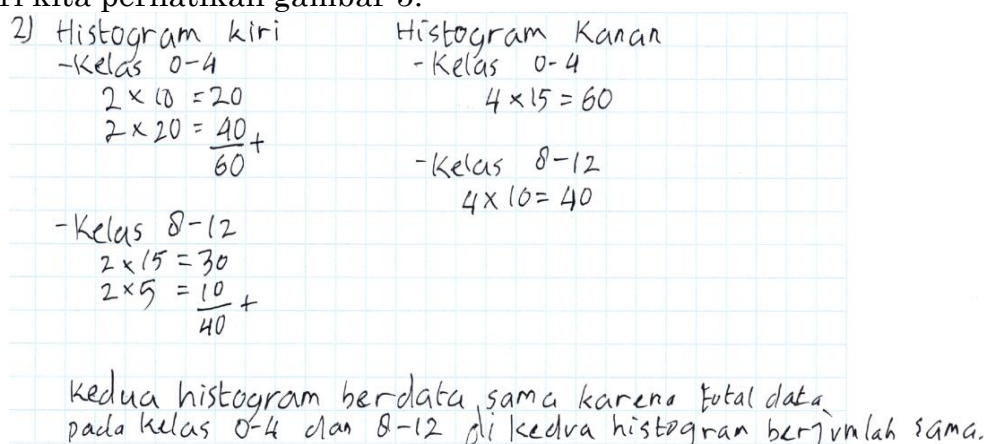 2) Histogram kiri
-Kelas 0-4
2 × 10 = 20
2 × 20 = 40 +
60
-Kelas 8-12
2 × 15 = 30
2 × 5 = 10 +
40
Histogram Kanan
- Kelas 0-4
4 × 15 = 60
-Kelas 8-12
4 × 10 = 40
kedua histogram berdata sama karena total data
pada kelas 0-4 dan 8-12 di kedua histogram berjumlah sama.